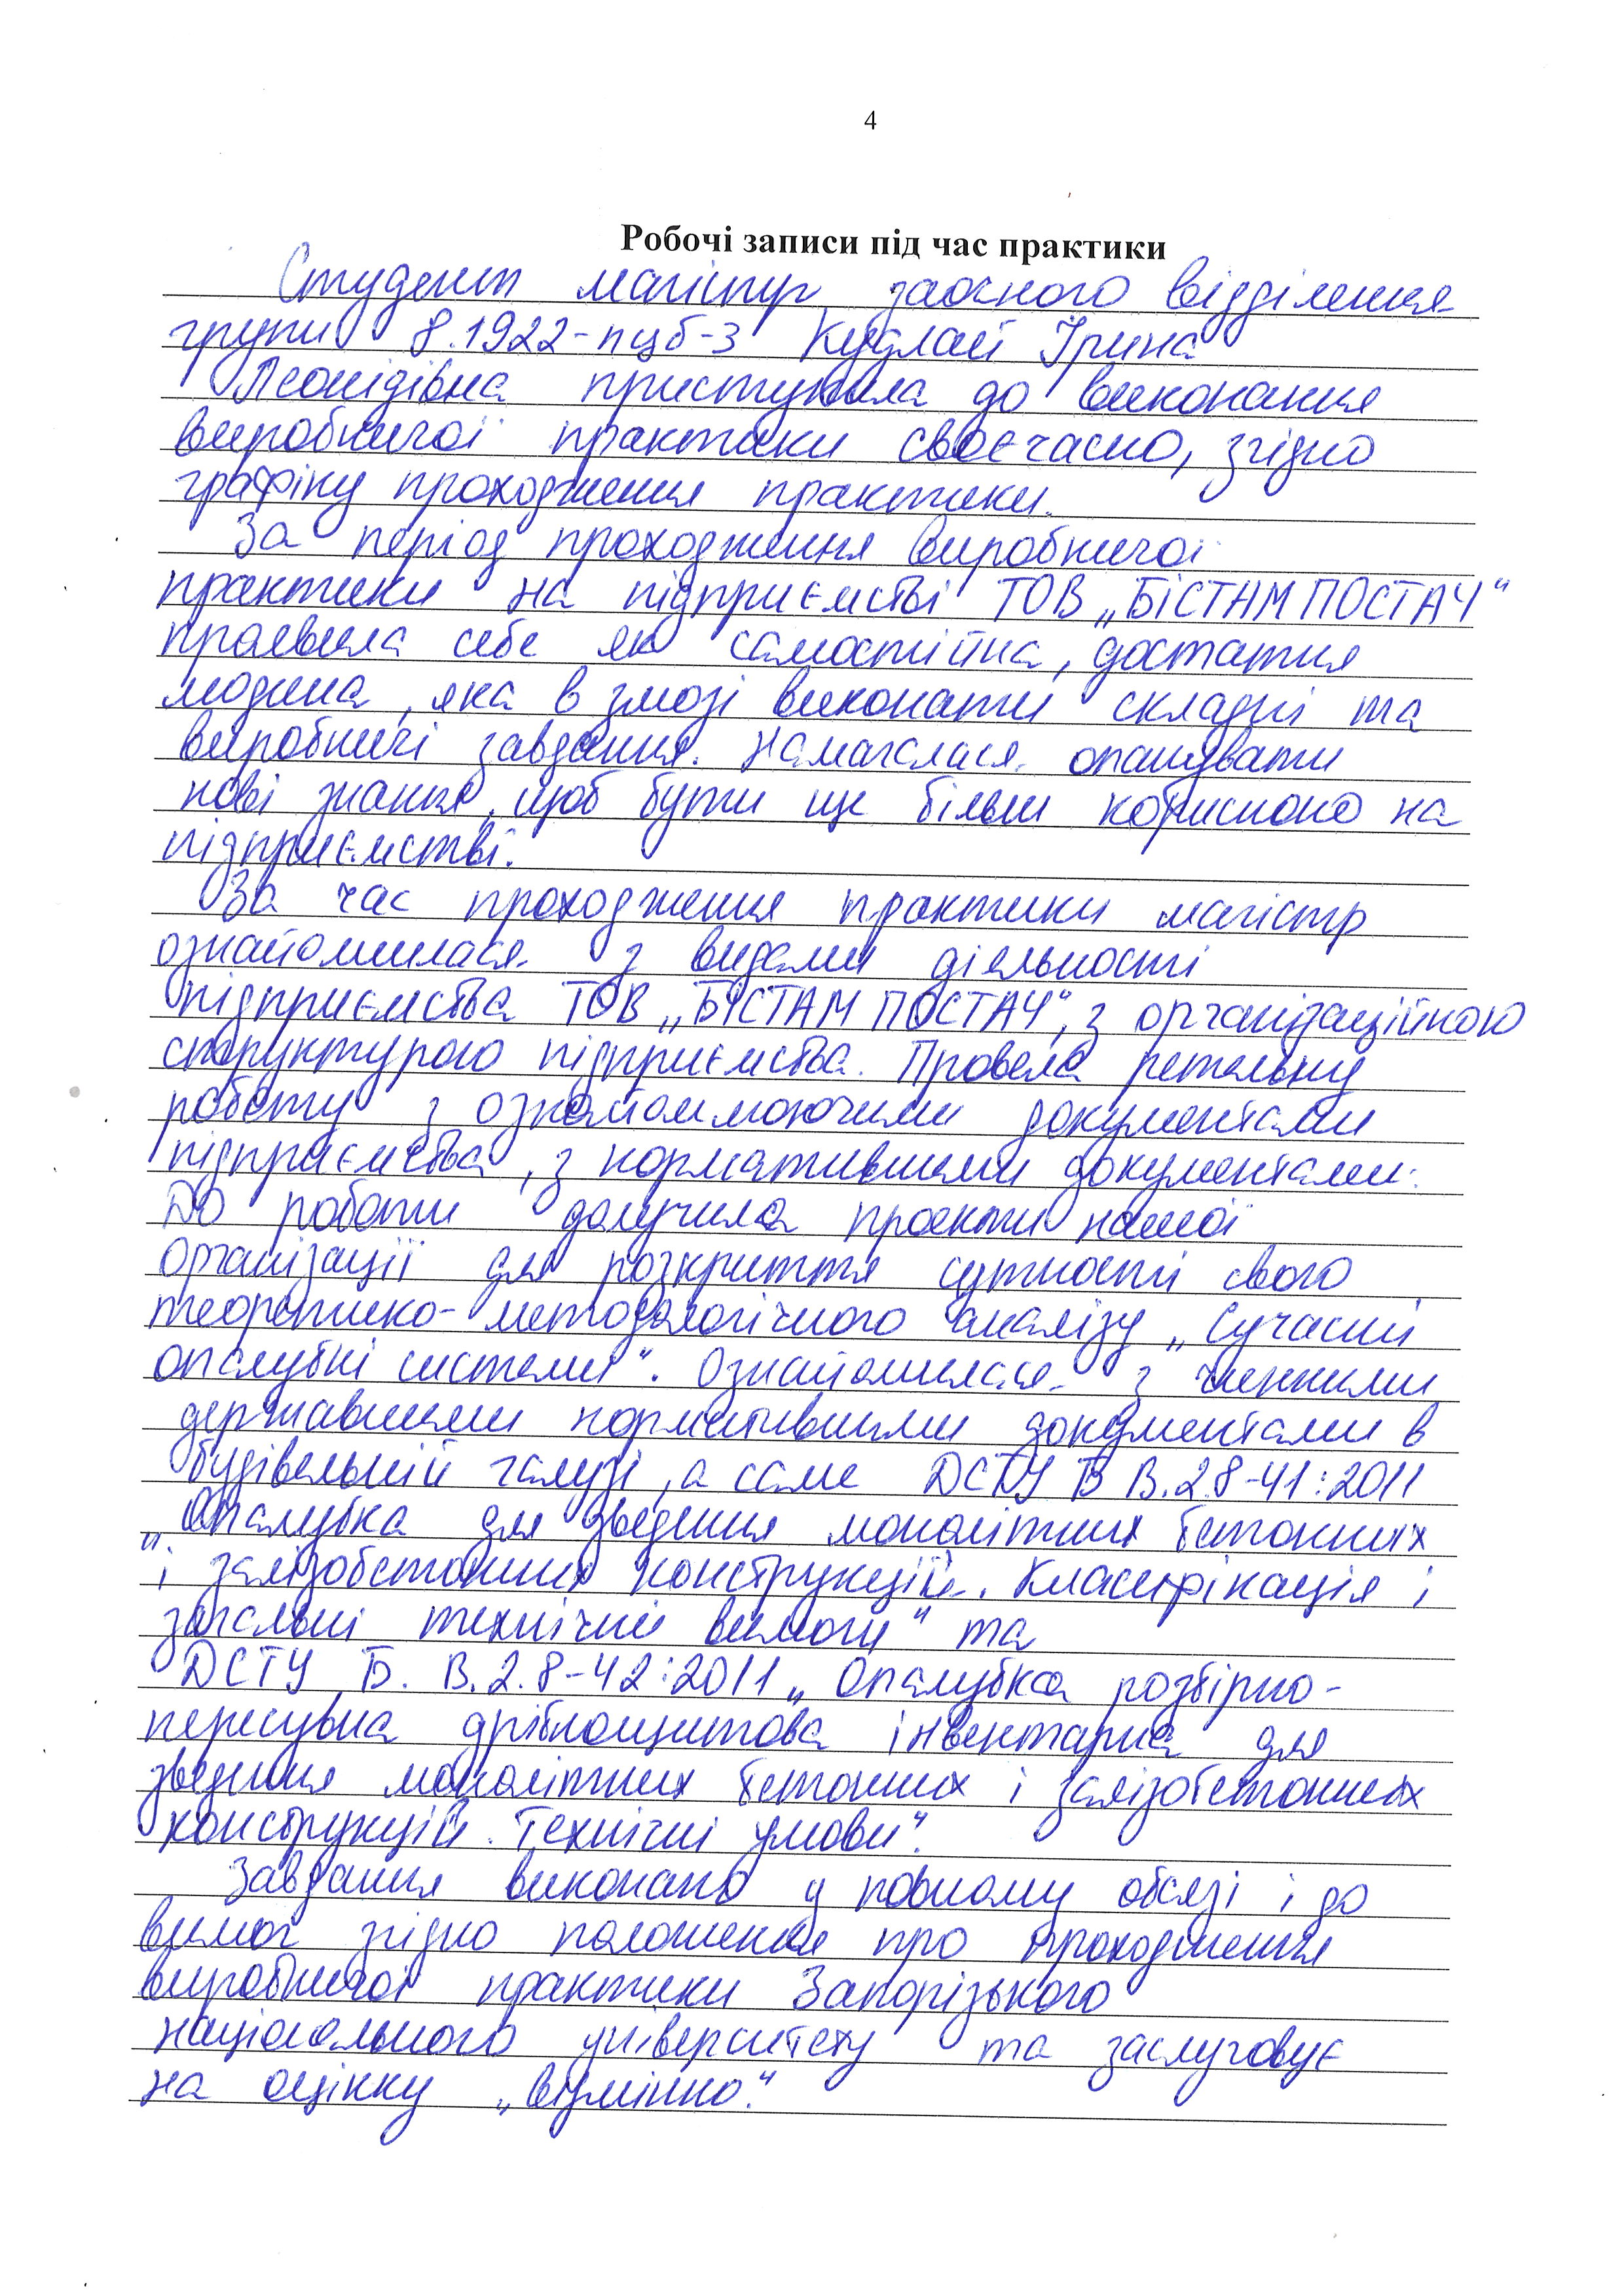 4
Робочі записи під час практики
Студент магістр заочного відділення
групи 8.1922-пцб-з Кудлай Ірина
Леонідівна приступила до виконання
виробничої практики своєчасно, згідно
графіку проходження практики.
За період проходження виробничої
практики на підприємстві ТОВ „БІСТАМ ПОСТАЧ"
проявила себе як самостійна, достатня
людина, яка в змозі виконати складні та
виробничі завдання. Намагалася опанувати
нові знання, щоб бути ще більш корисною на
підприємстві.
За час проходження практики магістр
ознайомилася з видами діяльності
підприємства ТОВ „БІСТАМ ПОСТАЧ", з організаційною
структурою підприємства. Провела ретельну
роботу з ознайомлюючими документами
підприємства, з нормативними документами.
До роботи долучила проекти нашої
організації для розкриття сутності свого
теоретико-методологічного аналізу „Сучасні
опалубні системи". Ознайомилася з чинними
державними нормативними документами в
будівельній галузі, а саме ДСТУ Б В.2.8-41:2011
„Опалубка для зведення монолітних бетонних
і залізобетонних конструкцій. Класифікація і
загальні технічні вимоги" та
ДСТУ Б. В.2.8-42:2011 „Опалубка розбірно-
пересувна дрібнощитова інвентарна для
зведення монолітних бетонних і залізобетонних
конструкцій. Технічні умови".
Завдання виконано у повному обсязі і до
вимог згідно положення про проходження
виробничої практики Запорізького
національного університету та заслуговує
на оцінку „відмінно."